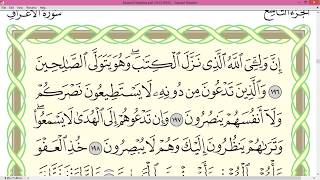 سُورَةُ الأَعْرَافِ الجُزْءُ التَّاسِعُ
إِنَّ وَلِـِّۧيَ ٱللَّهُ ٱلَّذِي نَزَّلَ ٱلْكِتَٰبَۖ وَهُوَ يَتَوَلَّى ٱلصَّٰلِحِينَ
١٩٦ وَٱلَّذِينَ تَدْعُونَ مِن دُونِهِۦ لَا يَسْتَطِيعُونَ نَصْرَكُمْ
وَلَآ أَنفُسَهُمْ يَنصُرُونَ ١٩٧ وَإِن تَدْعُوهُمْ إِلَى ٱلْهُدَىٰ لَا يَسْمَعُوا۟ۖ
وَتَرَىٰهُمْ يَنظُرُونَ إِلَيْكَ وَهُمْ لَا يُبْصِرُونَ ١٩٨ خُذِ ٱلْعَفْوَ